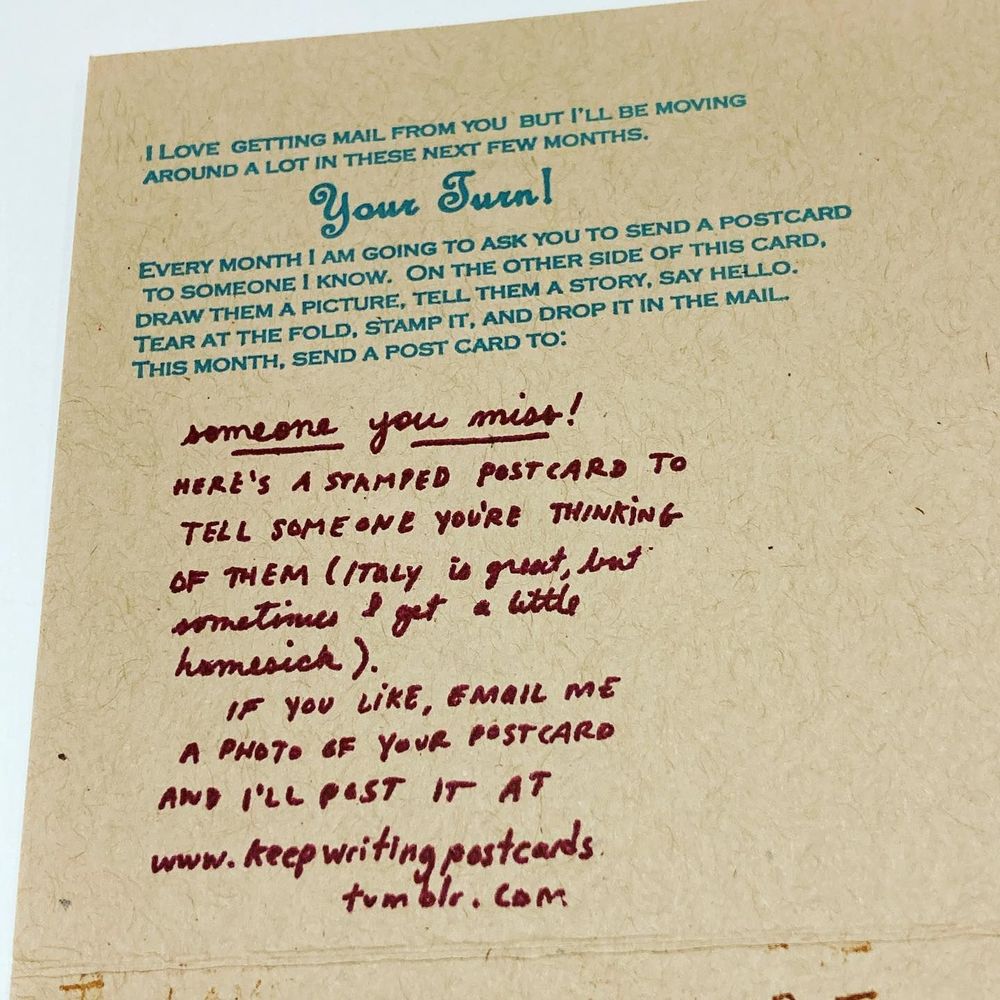 I LOVE GETTING MAIL FROM YOU BUT I'LL BE MOVING
AROUND A LOT IN THESE NEXT FEW MONTHS.
Your Turn!
EVERY MONTH I AM GOING TO ASK YOU TO SEND A POSTCARD
TO SOMEONE I KNOW. ON THE OTHER SIDE OF THIS CARD,
DRAW THEM A PICTURE, TELL THEM A STORY, SAY HELLO.
TEAR AT THE FOLD, STAMP IT, AND DROP IT IN THE MAIL.
THIS MONTH, SEND A POST CARD TO:
someone you miss!
HERE'S A STAMPED POSTCARD TO
TELL SOMEONE YOU'RE THINKING
OF THEM (ITALY is great, but
sometimes I get a little
homesick).
IF YOU LIKE, EMAIL ME
A PHOTO OF YOUR POSTCARD
AND I'LL POST IT AT
www.keepwritingpostcards.
tumblr.com